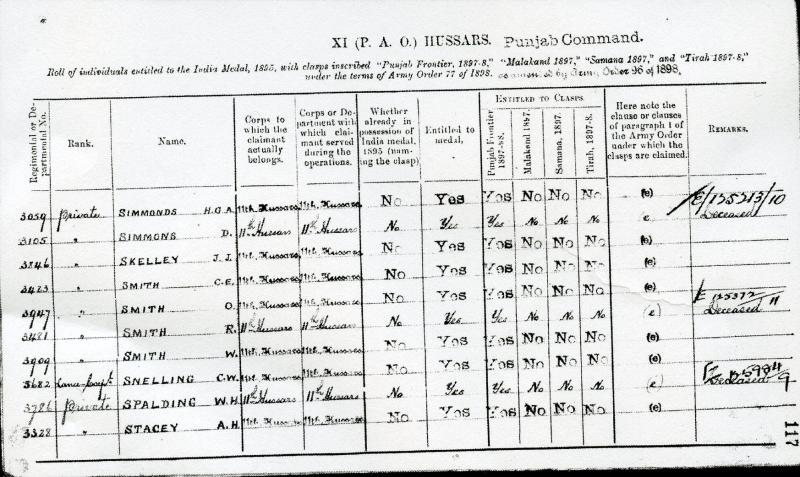 XI (P. A. O.) HUSSARS. Punjab Command.
Roll of individuals entitled to the India Medal, 1895, with clasps inscribed "Punjab Frontier, 1897-8," "Malakand 1897," "Samana 1897," and "Tirah 1897-8,"
under the terms of Army Order 77 of 1898. as amended by Army Order 96 of 1898.
Regimental or Departmental No. Rank. Name. Corps to which the claimant actually belongs. Corps or Department with which claimant served during the operations. Whether already in possession of India medal, 1895 (naming the clasp) Entitled to medal, ENTITLED TO CLASPS. Punjab Frontier 1897-98. Malakand 1897. Samana, 1897. Tirah, 1897-8. Here note the clause or clauses of paragraph 1 of the Army Order under which the clasps are claimed. REMARKS.
3059 Private SIMMONDS H.G.A. 11th. Hussars. 11th. Hussars. No Yes Yes No No No (e) E/135313/10
3105 " SIMMONS D. 11th Hussars 11th Hussars No Yes Yes No No No e Deceased
3846 " SKELLEY J.J. 11th. Hussars. 11th. Hussars. No Yes Yes No No No (e)
3423 " SMITH C.E. 11th. Hussars. 11th. Hussars. No Yes Yes No No No (e)
3947 " SMITH O. 11th. Hussars. 11th. Hussars. No Yes Yes No No No (e)
3481 " SMITH R. 11th Hussars 11th Hussars No Yes Yes No No No (e) Deceased 11
3909 " SMITH W. 11th. Hussars. 11th. Hussars. No Yes Yes No No No (e)
3682 Lance-Sergt SNELLING C.W. 11th. Hussars. 11th. Hussars. No Yes Yes No No No (e)
3786 Private SPALDING W.H. 11th Hussars 11th Hussars No Yes Yes No No No (e) Deceased 9
3328 " STACEY A.H. 11th. Hussars. 11th. Hussars. No Yes Yes No No No (e)
117